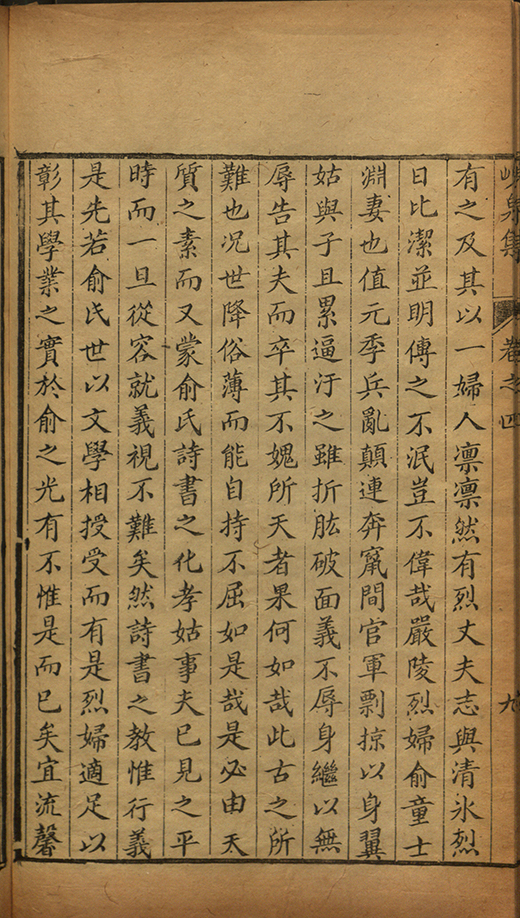 峴泉集 卷之四 九
有之及其以一婦人凛凛然有烈丈夫志與清氷烈
日比潔並明傳之不泯豈不偉哉嚴陵烈婦俞童士
淵妻也值元季兵亂顛連奔竄間官軍剽掠以身翼
姑與子且累逼汙之雖折肱破面義不辱身繼以無
辱告其夫而卒其不媿所天者果何如哉此古之所
難也况世降俗薄而能自持不屈如是哉是必由天
質之素而又蒙俞氏詩書之化孝姑事夫已見之平
時而一旦從容就義視不難矣然詩書之教惟行義
是先若俞氏世以文學相授受而有是烈婦適足以
彰其學業之實於俞之光有不惟是而已矣宜流馨